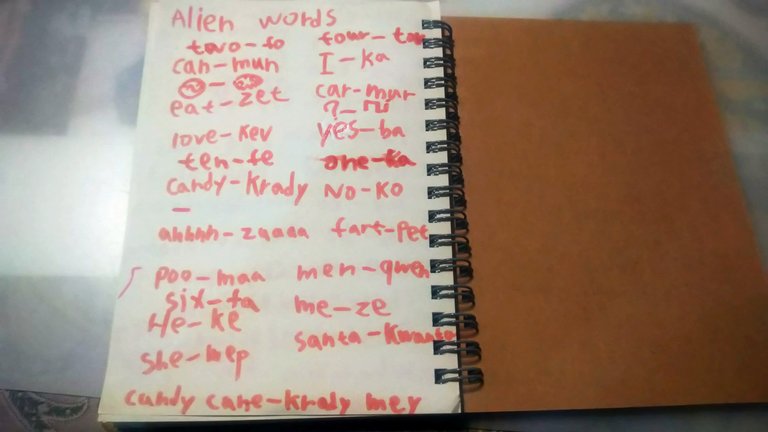 Alien words
two-fo
can-mun
eat-zet
love-kev
ten-fe
candy-krady
ahhhh-zaaaa
poo-maa
six-fa
He-ke
she-mep
four-
I-ka
car-mur
yes-ba
one-ka
No-ko
fart-pet
men-qwen
me-ze
santa-kwanta
candy cane-krady mey